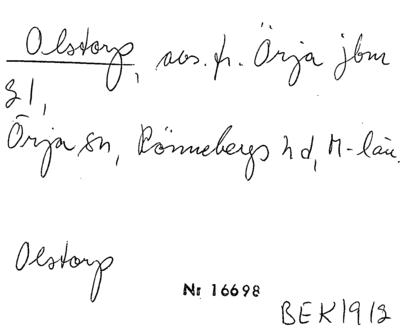 Olstorp, avs. fr. Örja jbm
§1,
Örja sn, Rönnebergs hd, M-län.
Olstorp
Nr 16698
BEK 1912